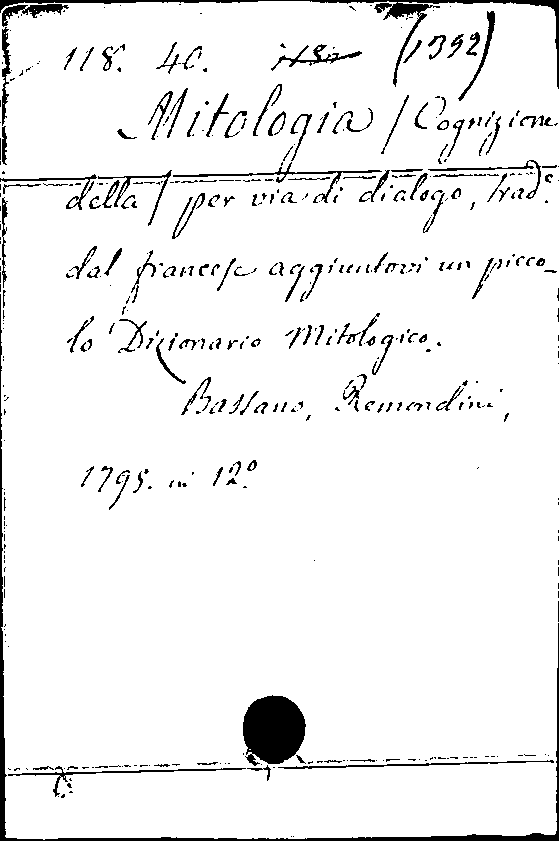 118. 40. (1392)
Mitologia / Cognizione
della / per via di dialogo, trad.e
dal francese aggiuntovi un picco-
lo Dizionario Mitologico.
Bassano, Remondini,
1795. in 12.º